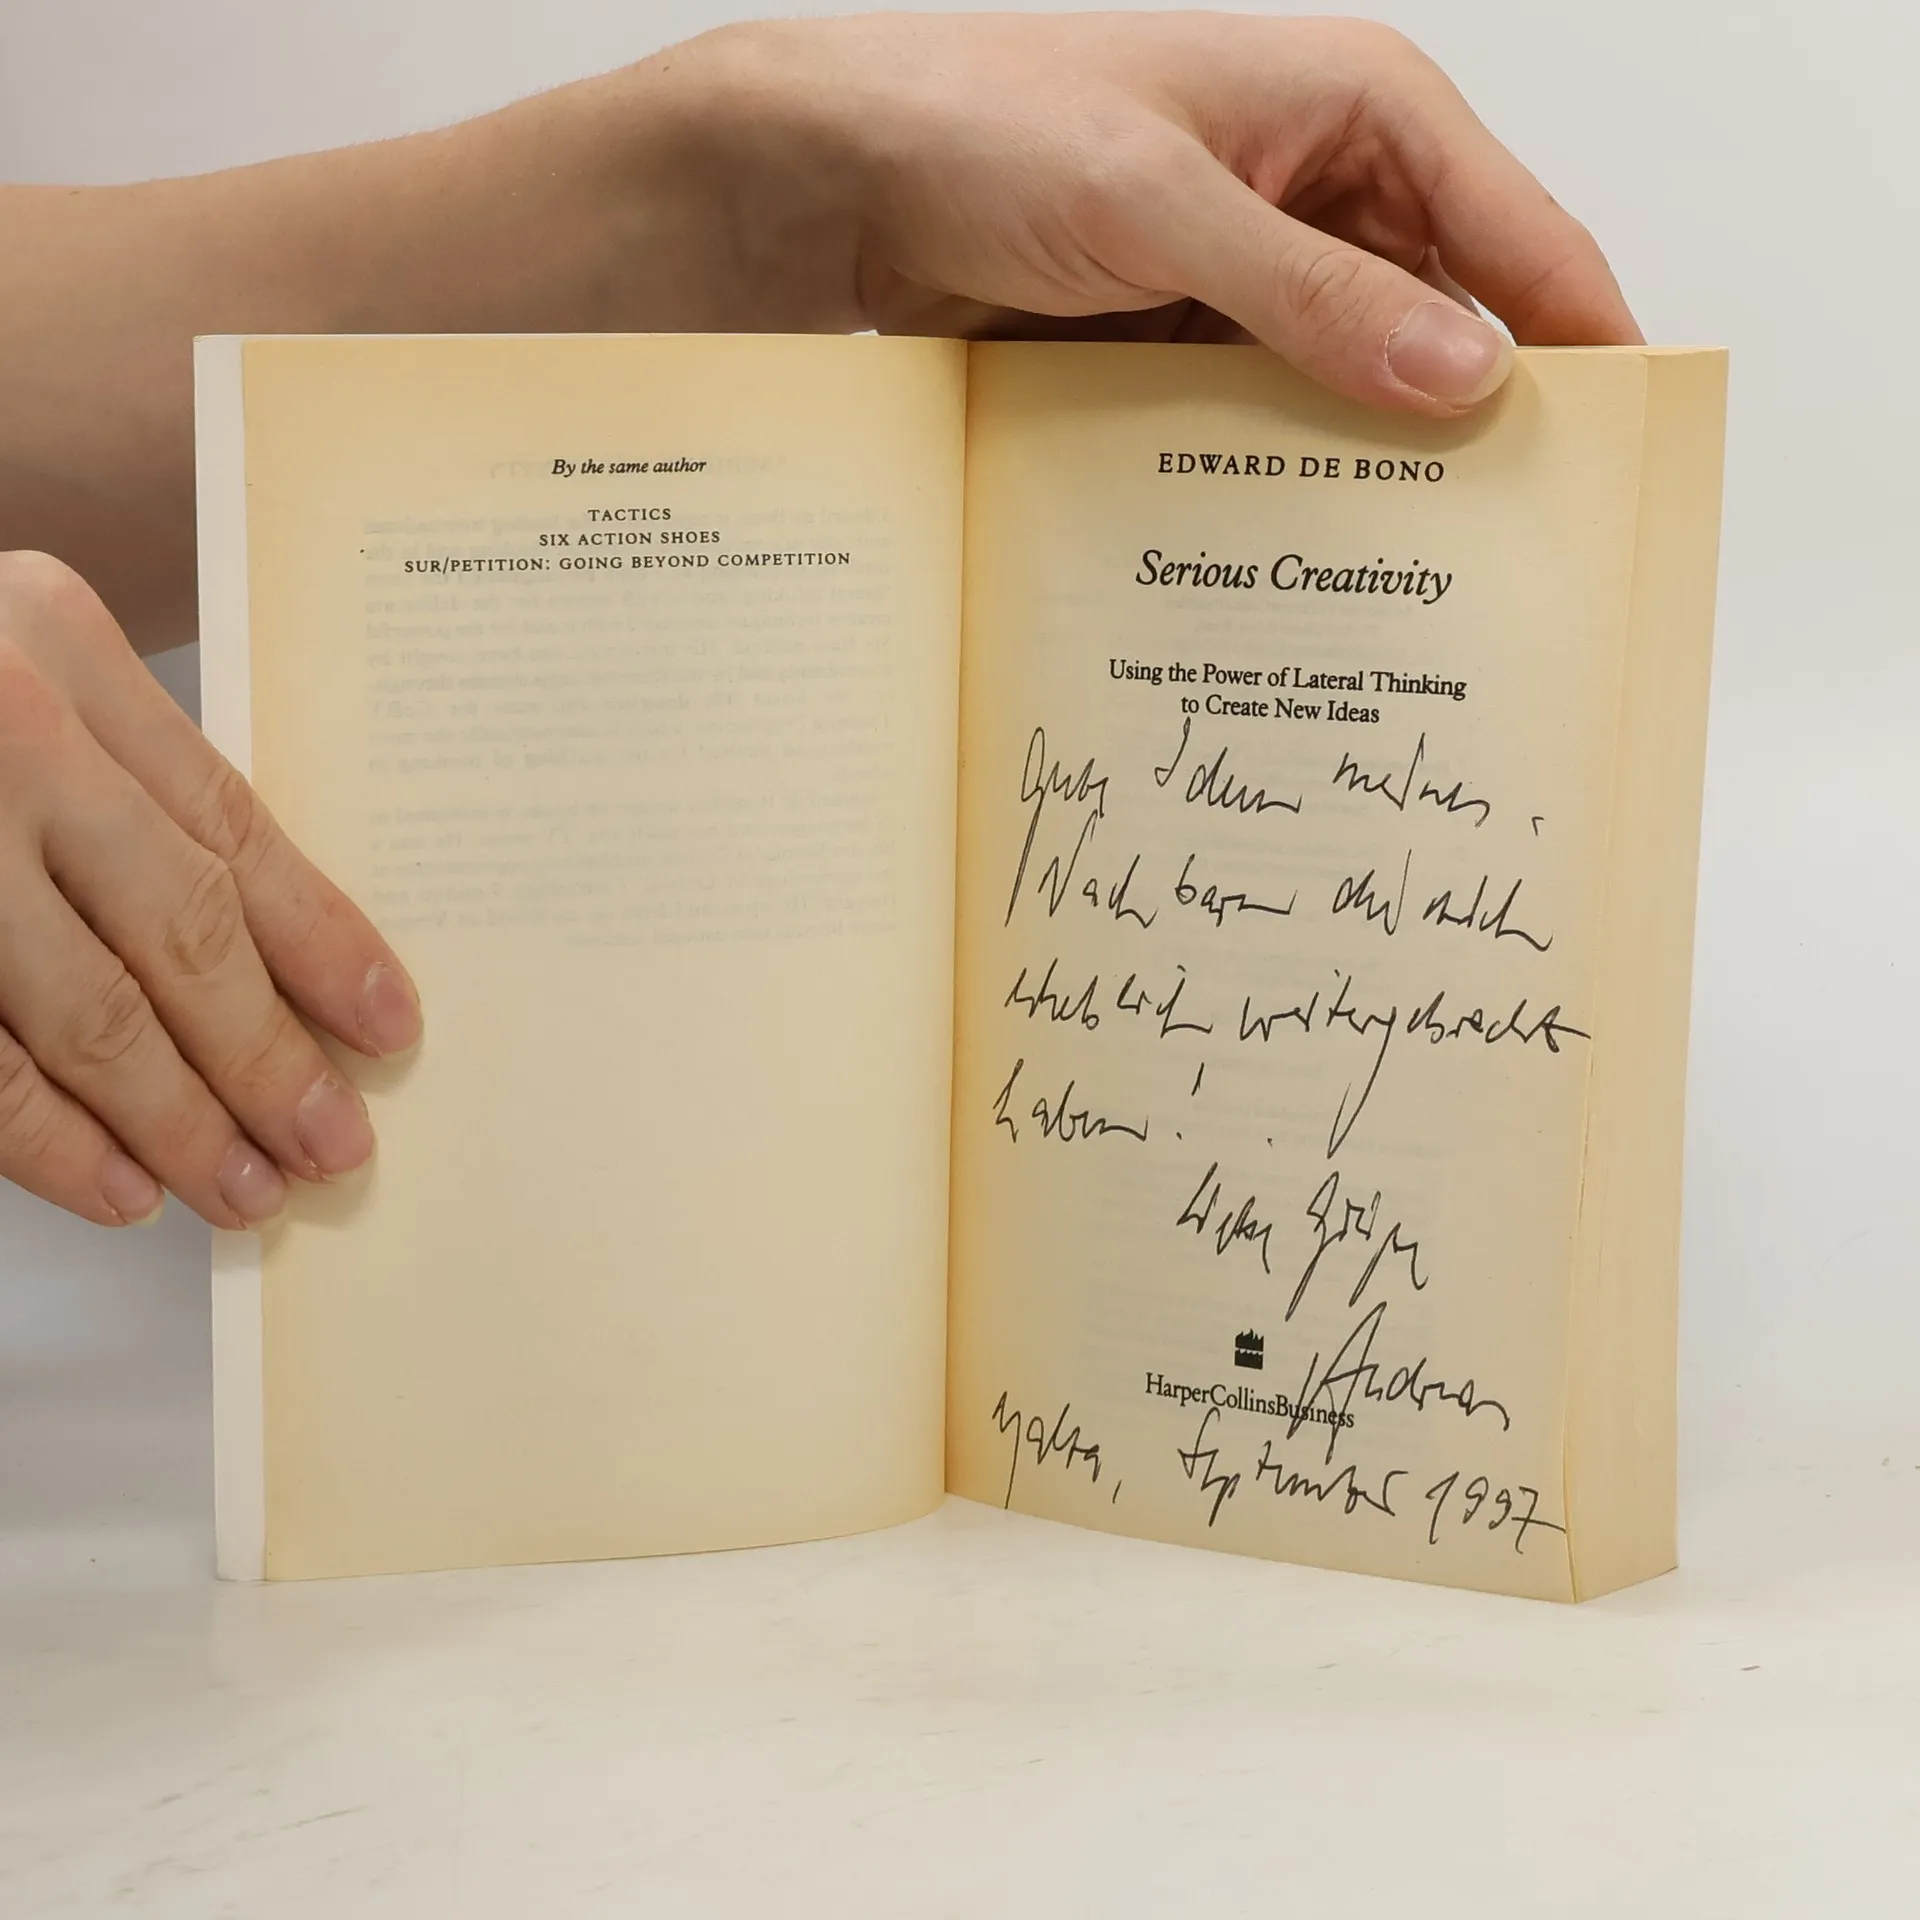 By the same author
TACTICS
SIX ACTION SHOES
SUR/PETITION: GOING BEYOND COMPETITION
EDWARD DE BONO
Serious Creativity
Using the Power of Lateral Thinking
to Create New Ideas
Gute Ideen meines
Nachbarn die mich
erheblich weitergebracht
haben!
Liebe Grüße
Andreas
HarperCollinsBusiness
Malta, September 1997